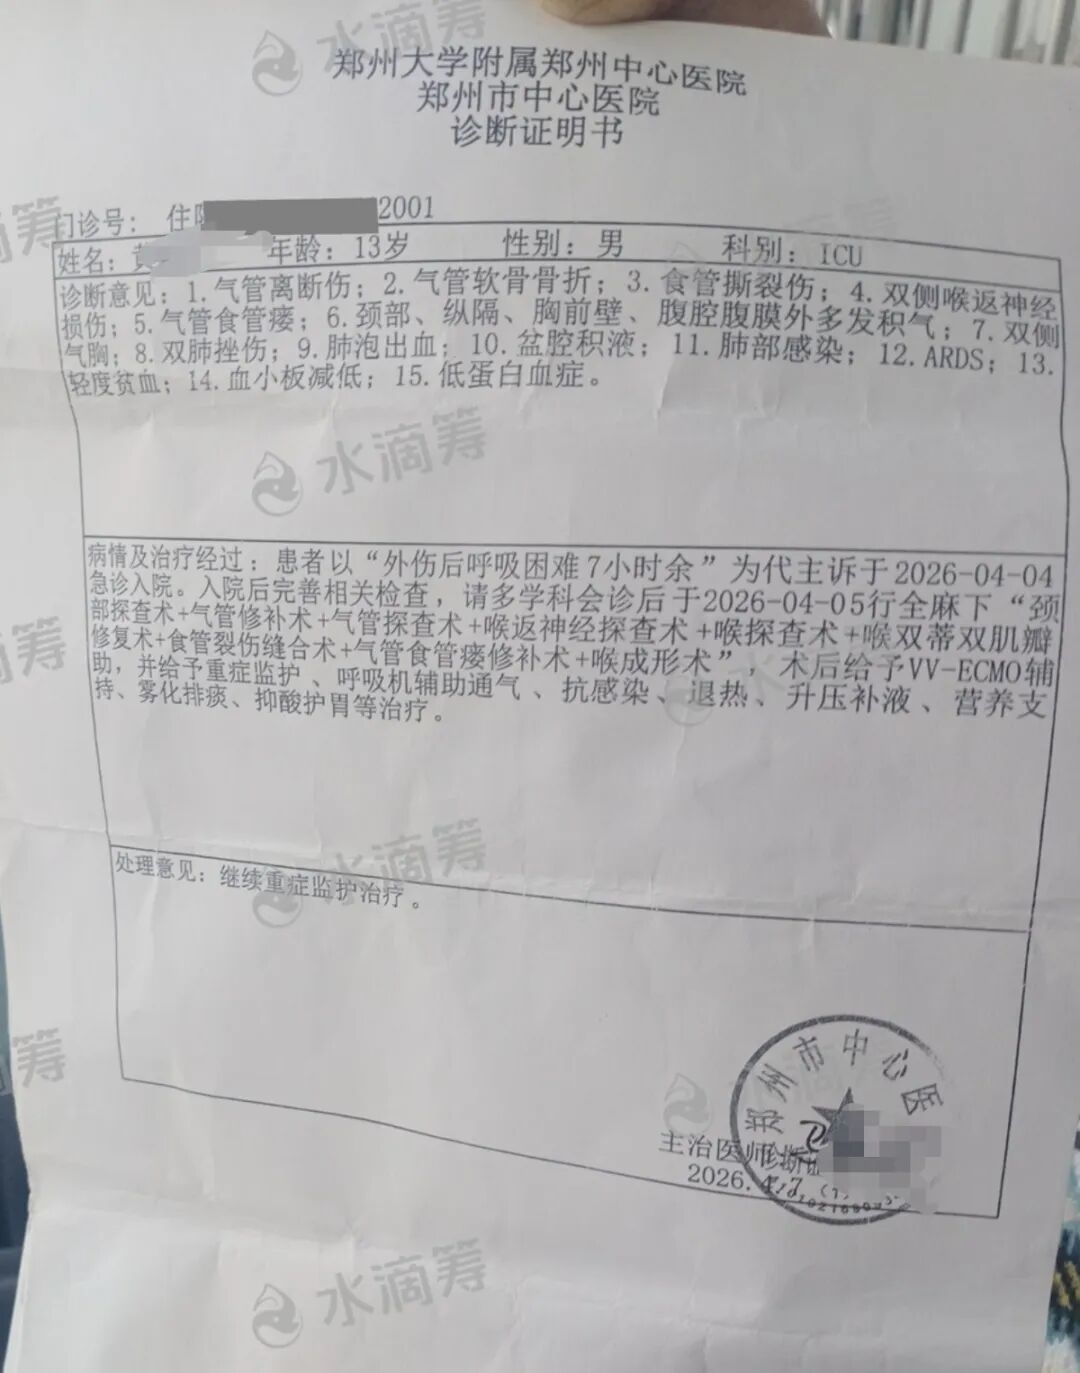 水滴筹
郑州大学附属郑州中心医院
郑州市中心医院
诊断证明书
门诊号： 住 2001
姓名：黄 年龄：13岁 性别：男 科别：ICU
诊断意见：1.气管离断伤；2.气管软骨骨折；3.食管撕裂伤；4.双侧喉返神经
损伤；5.气管食管瘘；6.颈部、纵隔、胸前壁、腹腔腹膜外多发积气；7.双侧
气胸；8.双肺挫伤；9.肺泡出血；10.盆腔积液；11.肺部感染；12.ARDS；13.
轻度贫血；14.血小板减低；15.低蛋白血症。
水滴筹
病情及治疗经过：患者以“外伤后呼吸困难7小时余”为代主诉于2026-04-04
急诊入院。入院后完善相关检查，请多学科会诊后于2026-04-05行全麻下“颈
部探查术+气管修补术+气管探查术+喉返神经探查术+喉探查术+喉双蒂双肌瓣
修复术+食管裂伤缝合术+气管食管瘘修补术+喉成形术”，术后给予VV-ECMO辅
助，并给予重症监护、呼吸机辅助通气、抗感染、退热、升压补液、营养支
持、雾化排痰、抑酸护胃等治疗。
水滴筹
处理意见：继续重症监护治疗。
郑州市中心医
主治医师
诊断
2026.4.7
水滴筹